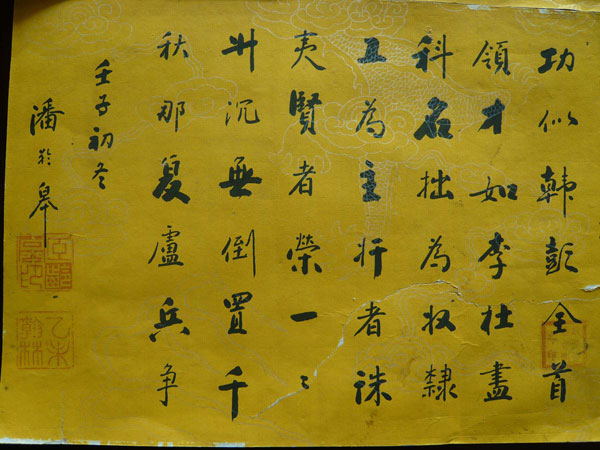 功似韓彭全首
領才如李杜盡
科名拙為奴隸
工為主奸者誅
夷賢者榮一〻
升沉無倒置千
秋那夏盧兵爭
壬子初冬
潘齡皋
乙未翰林